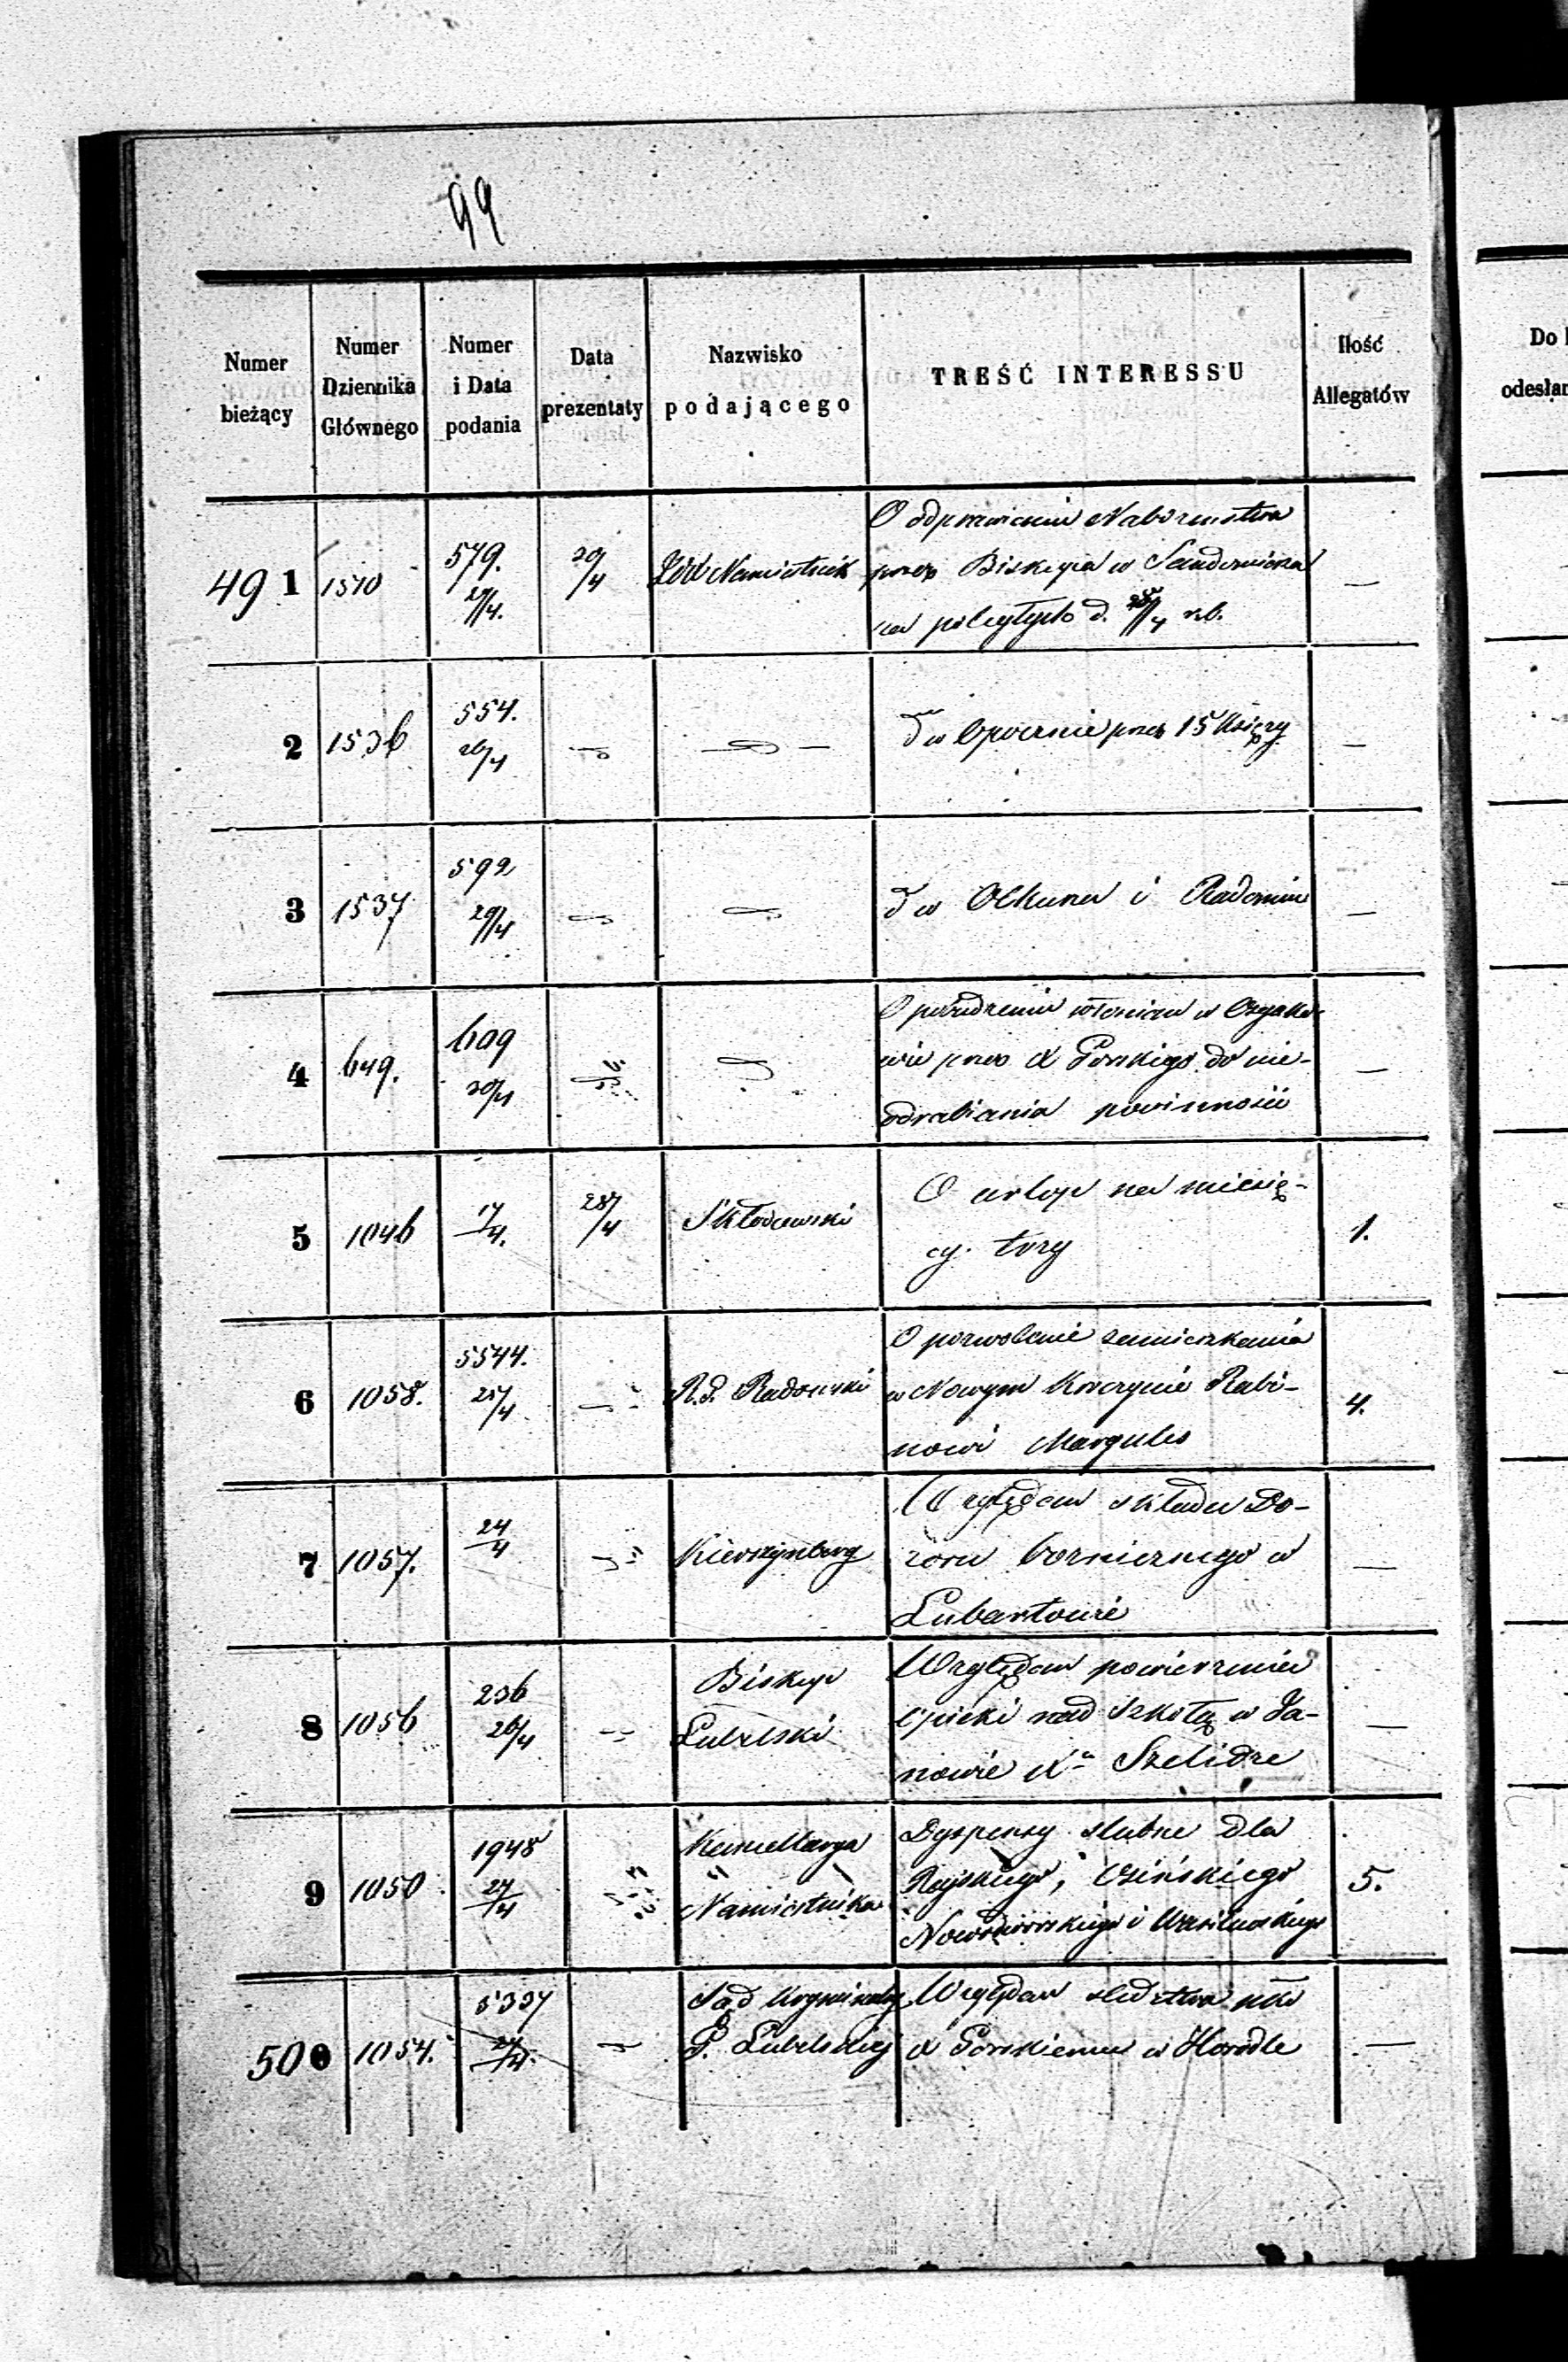 99
Numer bieżący
Numer Dziennika Głównego
Numer i Data podania
Data prezentaty
Nazwisko podającego
TREŚĆ INTERESSU
Ilość Allegatów
Do
odesłan
49 1 1570 579. 29/4. 29/4 Namiestnik O odprawieniu Nabożeństwa
przez Biskupa w Sandomierzu
za poległych d. /4 r.b. —
2 1536 554. 26/4 — — dto w Opocznie przez 15 Księży —
3 1537 592 29/4 — — dto w Olkuszu i Radomiu —
4 649. 609 30/4 — O pobudzeniu włościan w
wie przez X Górskiego do nie-
odrabiania powinności —
5 1046 17/4. 28/4 Skłodowski O urlop na miesię-
cy. trzy 1.
6 1058. 5544. 25/4 — R.G. Radomski O pozwolenie zamieszkania
w Nowym Korczynie Rabi-
nowi Margules 4.
7 1057. 24/4 Kierszenberg Względem składu Do-
zoru bożniczego w
Lubartowie —
8 1056 236 26/4 — Biskup
Lubelski Względem powierzenia
opieki nad Szkołą w Ja-
nowie Xu Szelidze —
9 1050 1948 27/4 Kancellarya
Namiestnika Dyspensy ślubne dla
Rajskiego, Osińskiego
Nowodworskiego i Wasilewskiego 5.
500 1054. 5307 27/4. — Sąd Kryminalny
G. Lubelskiej Względem śledztwa
X Górskiemu w Horodle —